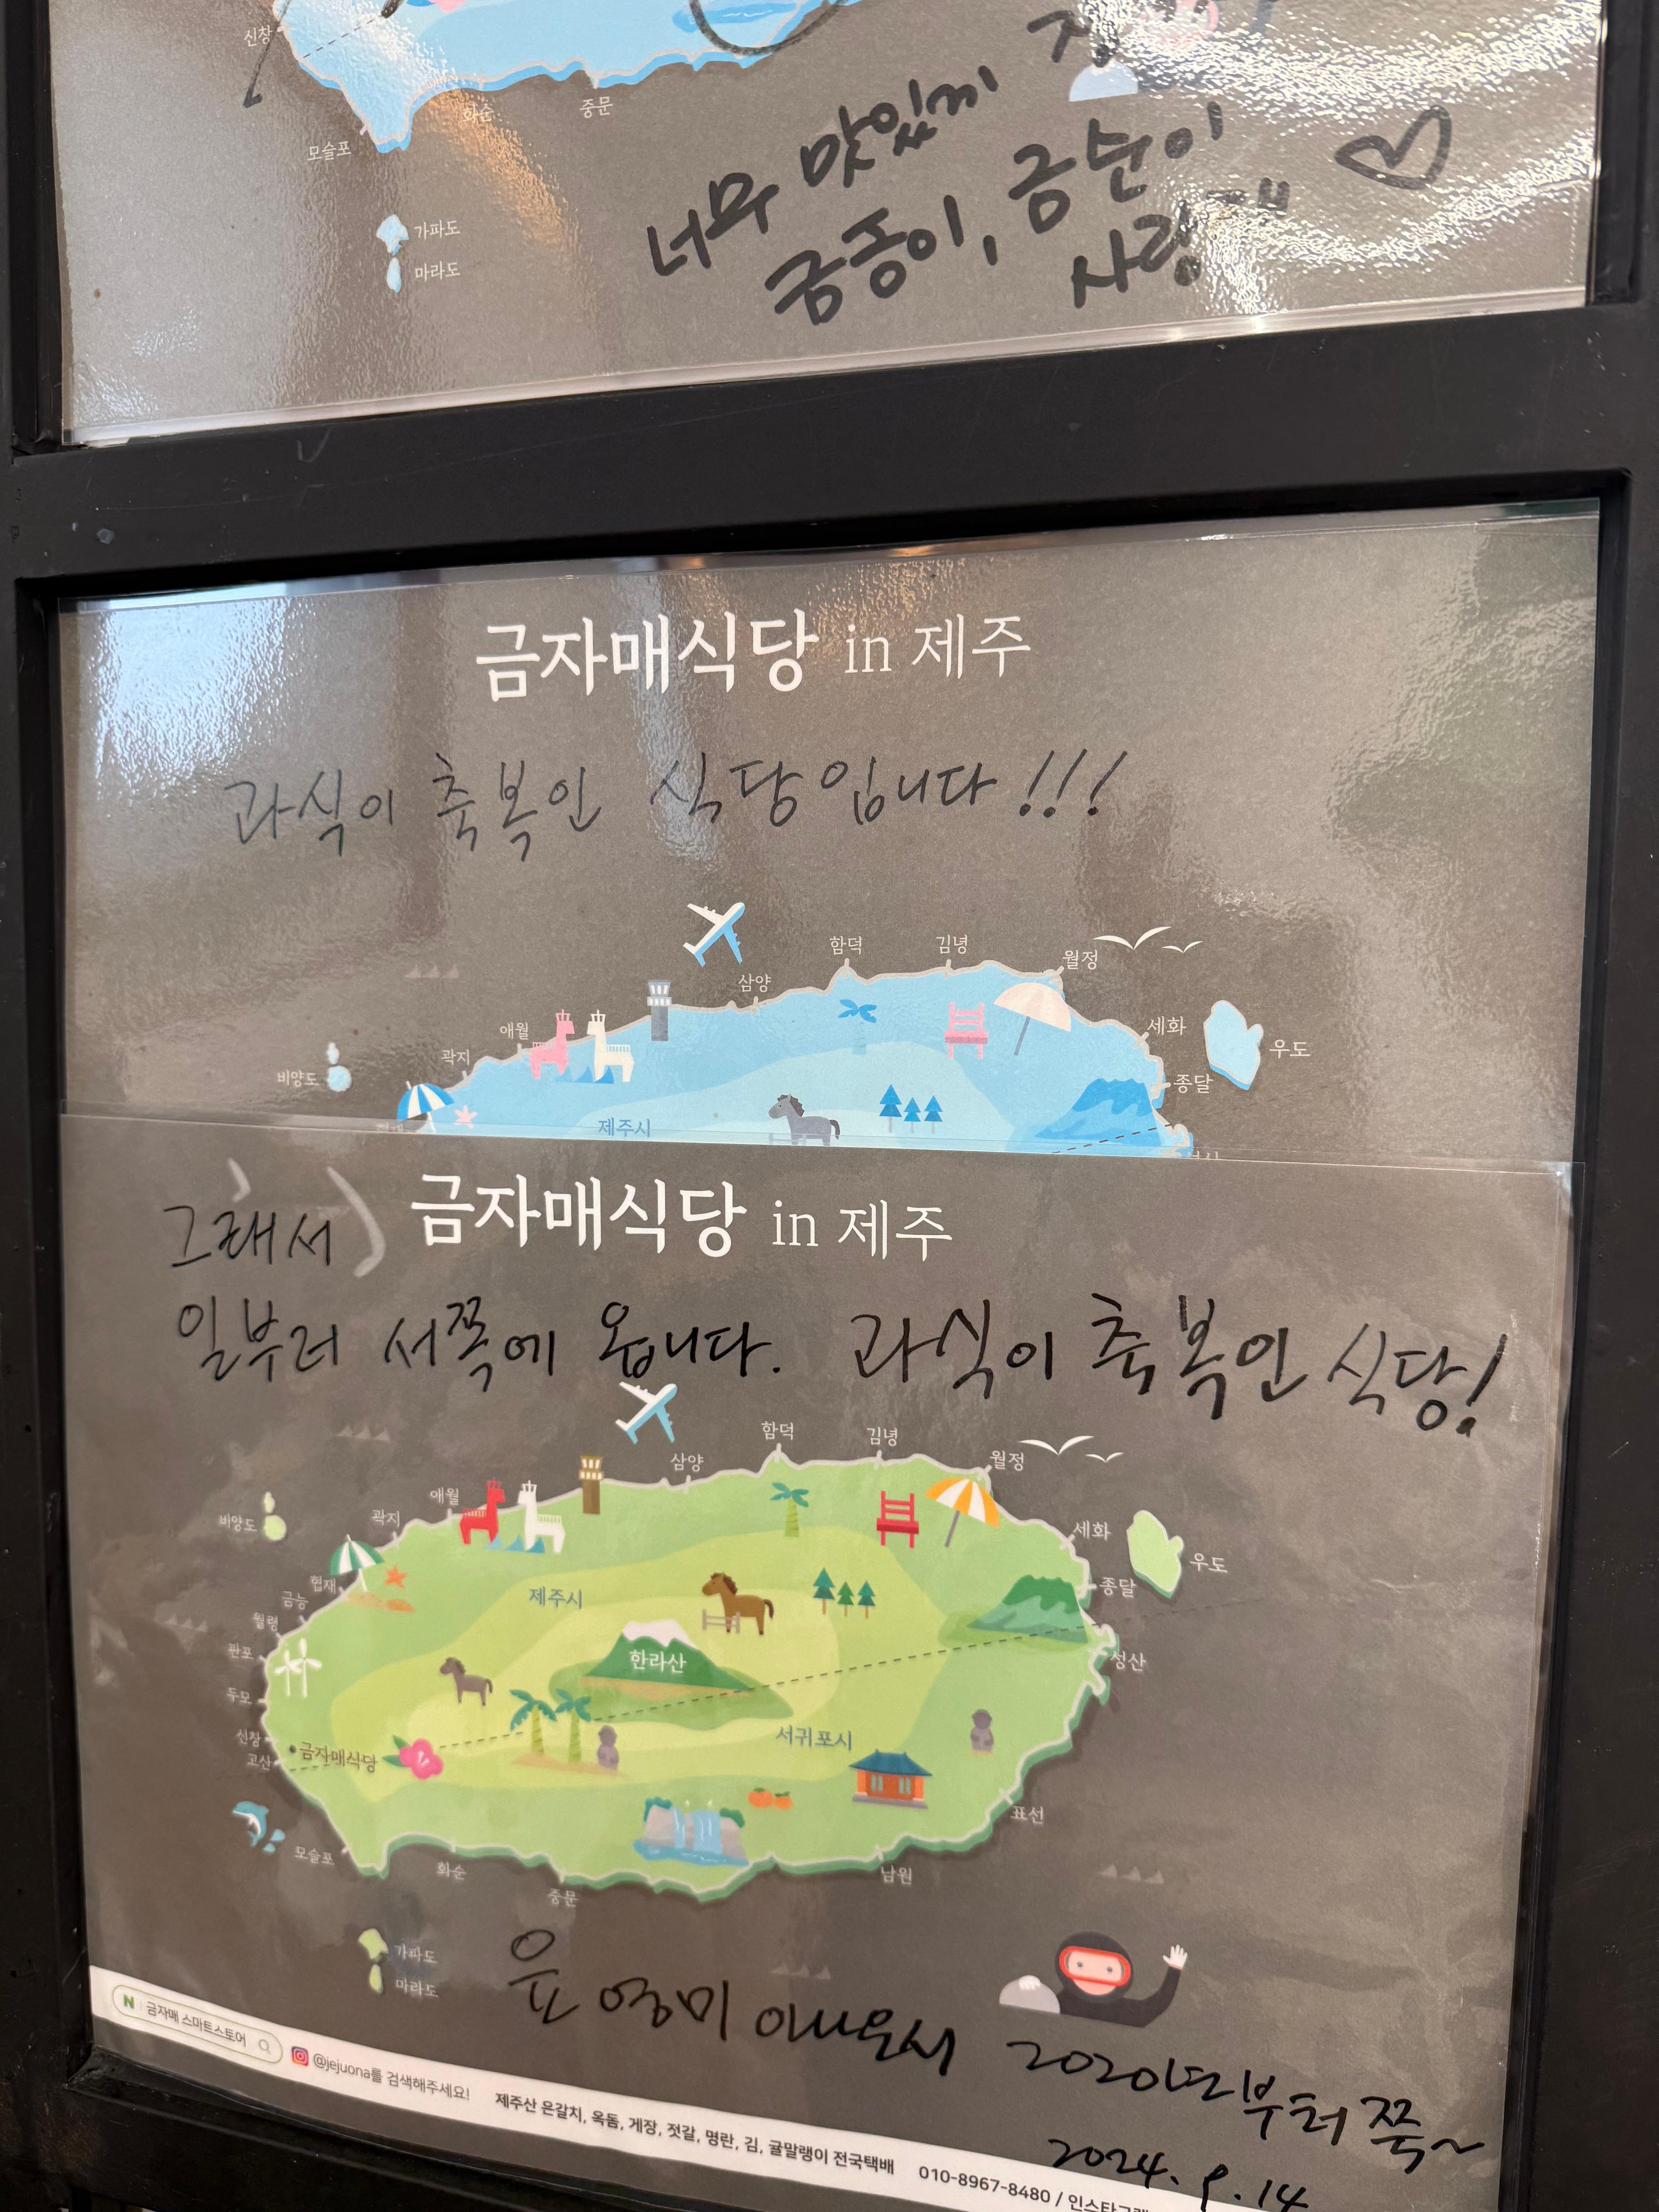 신창
화순
중문
모슬포
가파도
마라도
너무 맛있게
금종이, 금순이
사랑해
금자매식당 in 제주
과식이 축복인 식당입니다!!!
함덕
김녕
월정
삼양
애월
곽지
세화
우도
비양도
종달
제주시
그래서
금자매식당 in 제주
일부러 서쪽에 옵니다. 과식이 축복인 식당!
함덕
김녕
월정
삼양
애월
곽지
비양도
세화
우도
협재
제주시
종달
금능
월령
판포
한라산
성산
두모
신창
서귀포시
고산
금자매식당
표선
모슬포
화순
남원
중문
가파도
마라도
윤영미 아나운서 2020년부터 쭉~
2024. 9. 14
N 금자매 스마트스토어
@jejuona를 검색해주세요!
제주산 은갈치, 옥돔, 게장, 젓갈, 명란, 김, 귤말랭이 전국택배 010-8967-8480 /